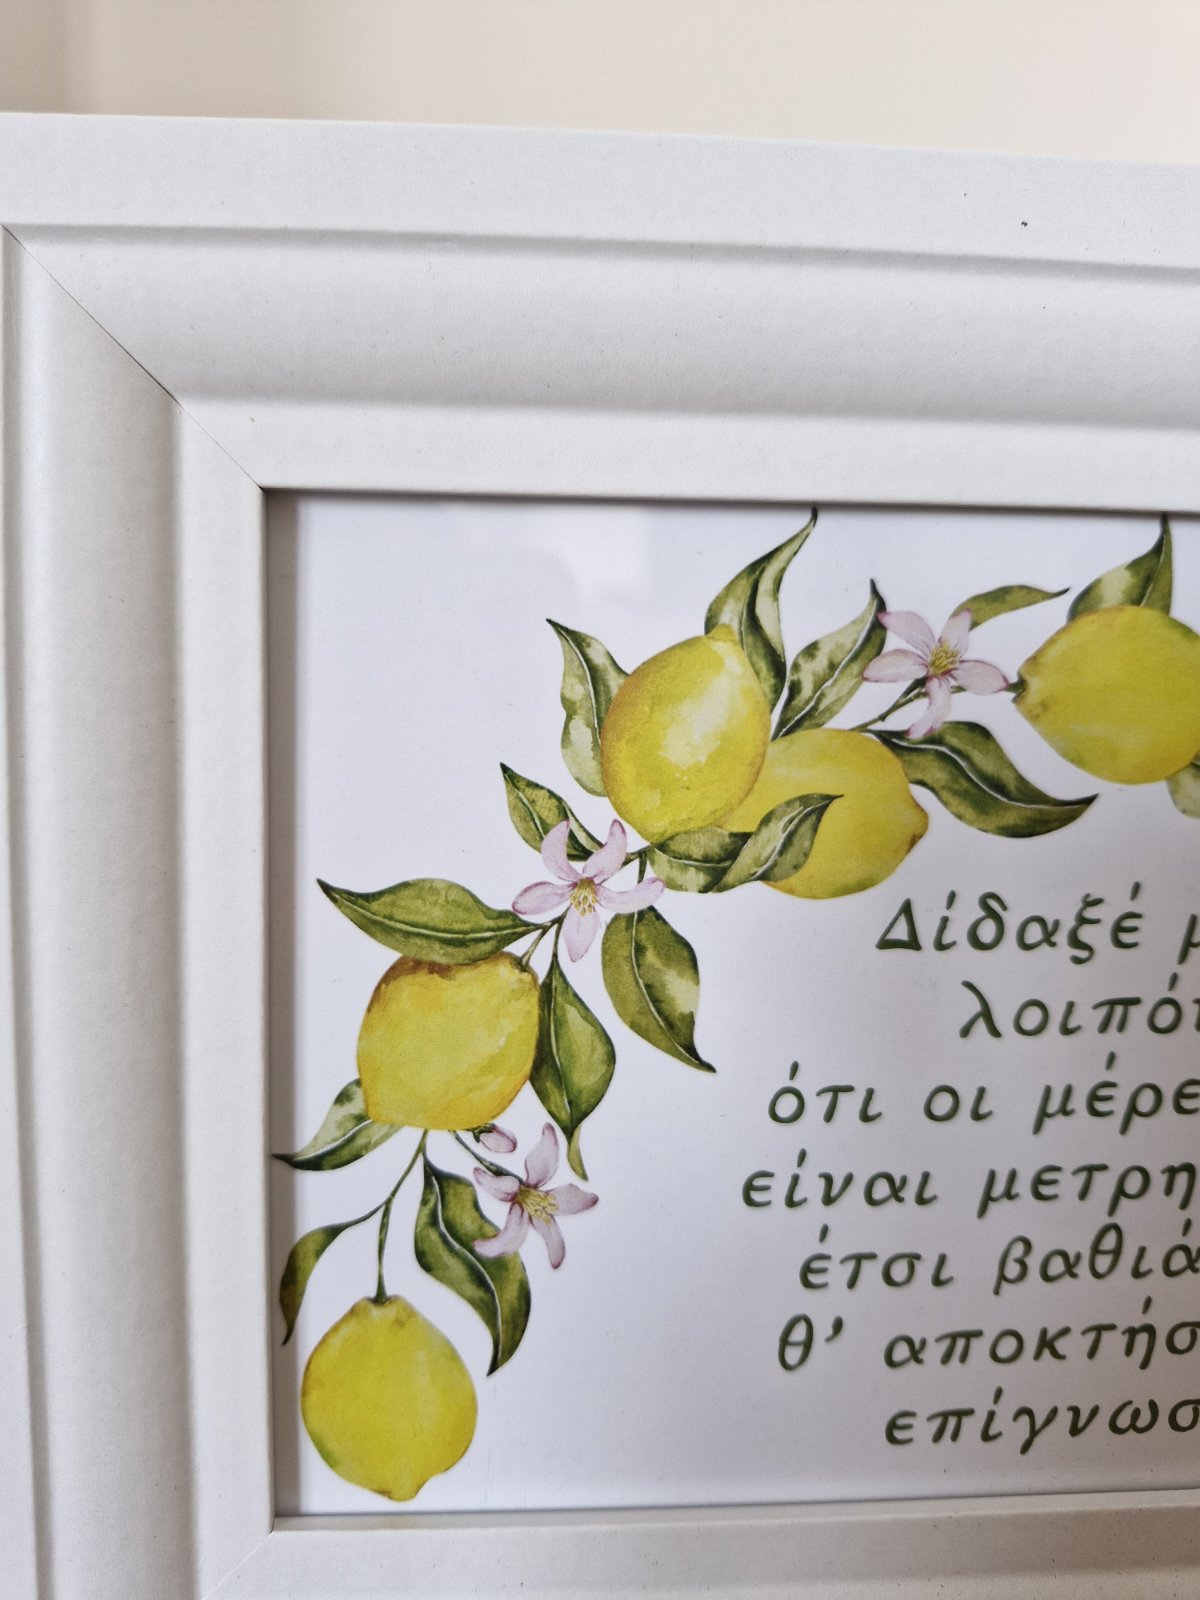 Δίδαξέ μ
λοιπόν
ότι οι μέρε
είναι μετρη
έτσι βαθιά
θ' αποκτήσ
επίγνωσ